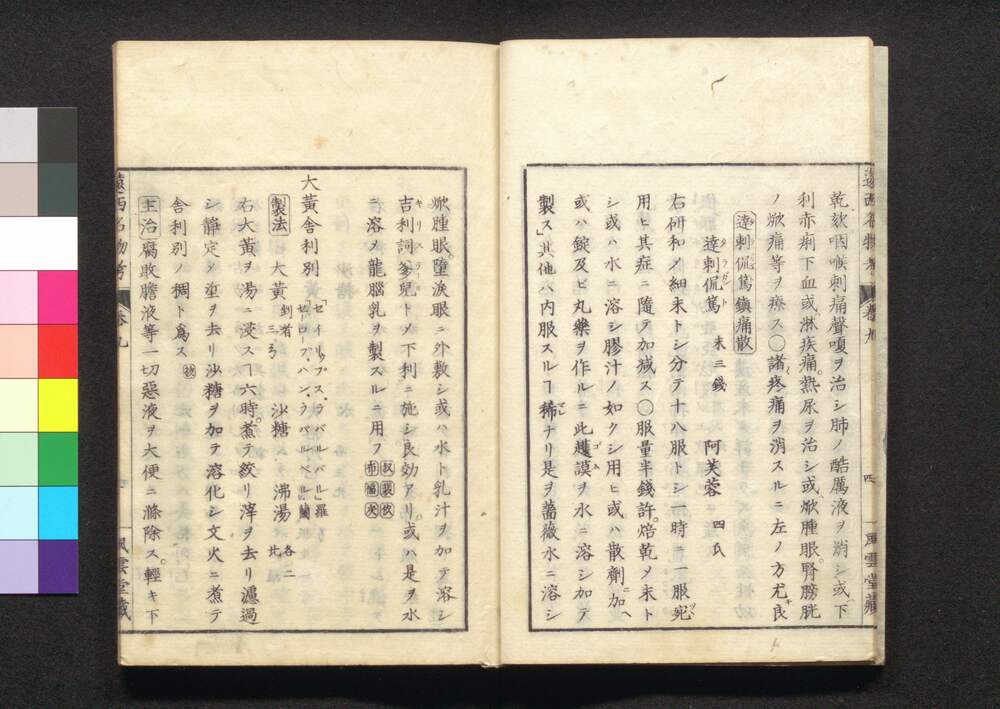 遠西名物考 卷九 四 風雲堂藏
乾欬咽喉刺痛聲嗄ヲ治シ肺ノ酷厲液ヲ消シ或ハ下
利赤痢下血或淋疾痛熱尿ヲ治シ或ハ焮腫眼腎膀胱
ノ焮痛等ヲ療ス〇諸疼痛ヲ消スルニ左ノ方尤良
達刺侃篤鎮痛散
達刺侃篤 末三錢 阿芙蓉 四瓜
右研和メ細末トシ分テ十八服トシ一時ニ一服宛
用ヒ其症ニ隨テ加減ス〇服量半錢許焙乾メ末ト
シ或ハ水ニ溶シ膠汁ノ如クシ用ヒ或ハ散劑ニ加ヘ
或ハ錠及ビ丸藥ヲ作ルニ此護謨ヲ水ニ溶シ加テ
製ス其他ハ内服スルヿ稀ナリ是ヲ薔薇水ニ溶シ
焮腫眼墮淚眼ニ外敷シ或ハ水ト乳汁ヲ加テ溶シ
吉利詞爹兒トメ下利ニ施シ良効アリ或ハ是ヲ水
ニ溶メ龍腦乳ヲ製スルニ用フ
大黃舍利別 「セイリュプス・ラバルバル」羅 「セロープ・ハン・ラバルベル」蘭
製法 大黃 剉者 三 沙糖 沸湯 各二
右大黃ヲ湯ニ浸スヿ六時煮テ絞リ滓ヲ去リ濾過
シ靜定メ垽ヲ去リ沙糖ヲ加テ溶化シ文火ニ煮テ
舍利別ノ稠ト爲ス
主治腐敗膽液等一切惡液ヲ大便ニ滌除ス輕キ下
遠西名物考 卷九 風雲堂藏